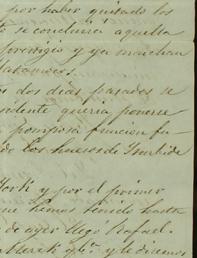 por haber quitado los
se concluiria aquella
prestigio y ya marchan
dos dias pasados se
sidente queria ponerse
pomposa funcion fu-
de los huesos de Iturbide
York y por el primer
que hemos tenido hasta
de ayer llego Rafael.
y le dicemos